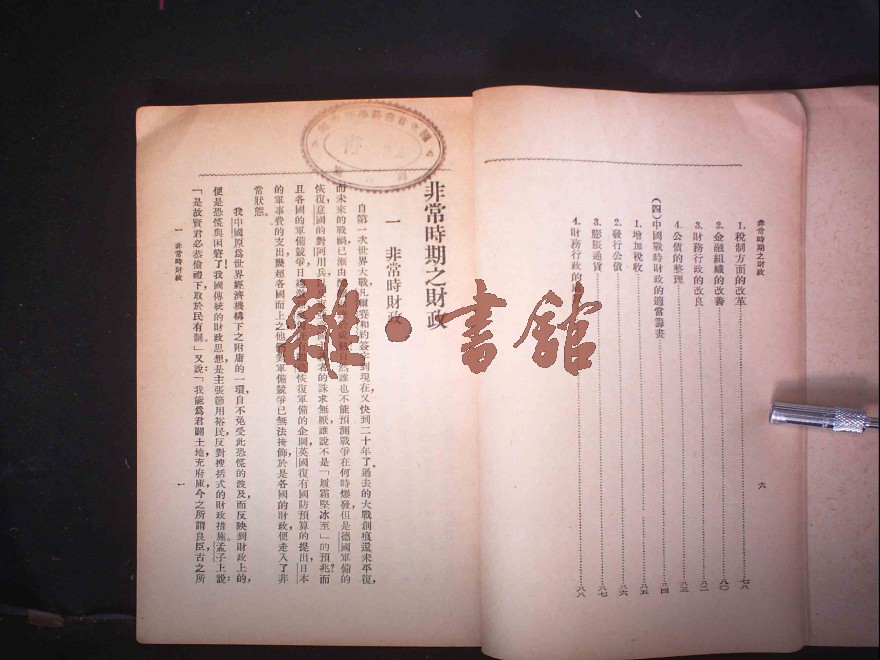 非常時期之財政
六
1. 稅制方面的改革 七八
2. 金融組織的改善 八〇
3. 財務行政的改良 八二
4. 公債的整理 八三
(四)中國戰時財政的適當籌畫 八四
1. 增加稅收 八五
2. 發行公債 八六
3. 膨脹通貨 八七
4. 財務行政的 八八
雜·書館
非常時期之財政
一 非常時財政
自第一次世界大戰凡爾賽和約簽字到現在,又快到二十年了。過去的大戰創痕還未平復,
而未來的戰禍已漸由 然誰也不能預測戰爭在何時爆發,但是德國軍備的
恢復,意國的對阿用兵, 者的誅求無厭,誰說不是「履霜堅冰至」的預兆?而
且各國的軍備競爭日趨 恢復軍備的企圖,英國復有國防預算的提出,日本
的軍事費的支出,幾超各國而上之,他們對軍備競爭已無法掩飾,於是各國的財政,便走入了非
常狀態。
我中國原爲世界經濟機構下之附庸的一環,自不免受此恐慌的波及,而反映到財政上的,
便是恐慌與困窘了!我國傳統的財政思想,是主張節用裕民,反對搜括式的財政措施。孟子上說:
「是故賢君必恭儉禮下,取於民有制。」又說:「我能爲君闢土地,充府庫,今之所謂良臣,古之所
一 非常時財政
一